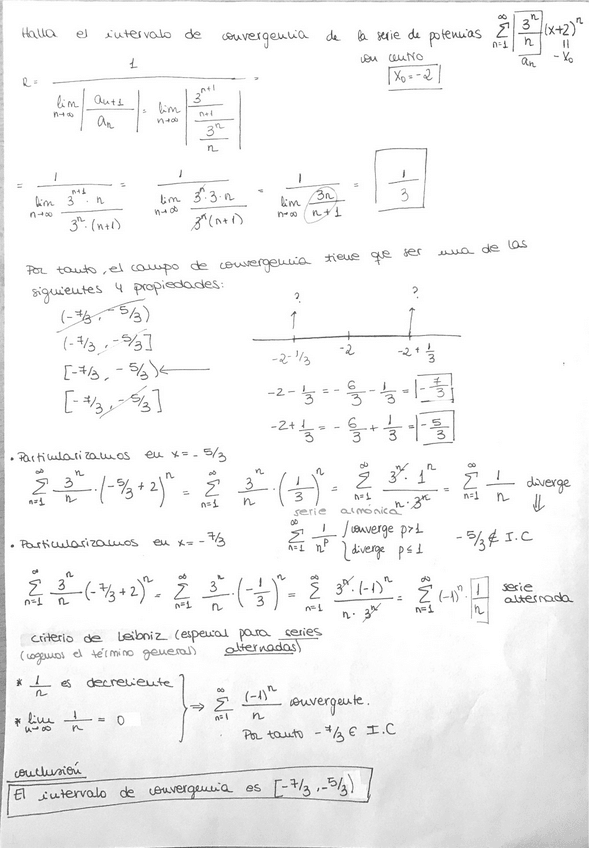 Halla el intervalo de convergencia de la serie de potencias ∑_{n=1}^{∞} 3^n/n (x+2)^n
a_n
"
-x_0
con centro
x_0 = -2
R = 1 / (lim_{n→∞} |a_{n+1}/a_n|) = 1 / (lim_{n→∞} |(3^{n+1}/(n+1)) / (3^n/n)|) =
= 1 / (lim_{n→∞} (3^{n+1}·n)/(3^n·(n+1))) = 1 / (lim_{n→∞} (3^n·3·n)/(3^n(n+1))) = 1 / (lim_{n→∞} 3n/(n+1)) = 1/3
Por tanto, el campo de convergencia tiene que ser una de las
siguientes 4 propiedades:
(-7/3, -5/3)
(-7/3, -5/3]
[-7/3, -5/3) ←
[-7/3, -5/3]
? ?
-2-1/3 -2 -2+1/3
-2 - 1/3 = -6/3 - 1/3 = -7/3
-2 + 1/3 = -6/3 + 1/3 = -5/3
• Particularizamos en x = -5/3
∑_{n=1}^{∞} 3^n/n · (-5/3 + 2)^n = ∑_{n=1}^{∞} 3^n/n · (1/3)^n = ∑_{n=1}^{∞} (3^n · 1^n)/(n · 3^n) = ∑_{n=1}^{∞} 1/n diverge
⇓
serie armónica
∑_{n=1}^{∞} 1/n^p { converge p>1
diverge p≤1
-5/3 ∉ I.C
• Particularizamos en x = -7/3
∑_{n=1}^{∞} 3^n/n (-7/3 + 2)^n = ∑_{n=1}^{∞} 3^n/n · (-1/3)^n = ∑_{n=1}^{∞} (3^n · (-1)^n)/(n · 3^n) = ∑_{n=1}^{∞} (-1)^n · 1/n serie
alternada
criterio de Leibniz (especial para series
(cogemos el término general) alternadas)
* 1/n es decreciente
* lim_{n→∞} 1/n = 0
} ⇒ ∑_{n=1}^{∞} (-1)^n/n convergente.
Por tanto -7/3 ∈ I.C
conclusión
El intervalo de convergencia es [-7/3, -5/3)